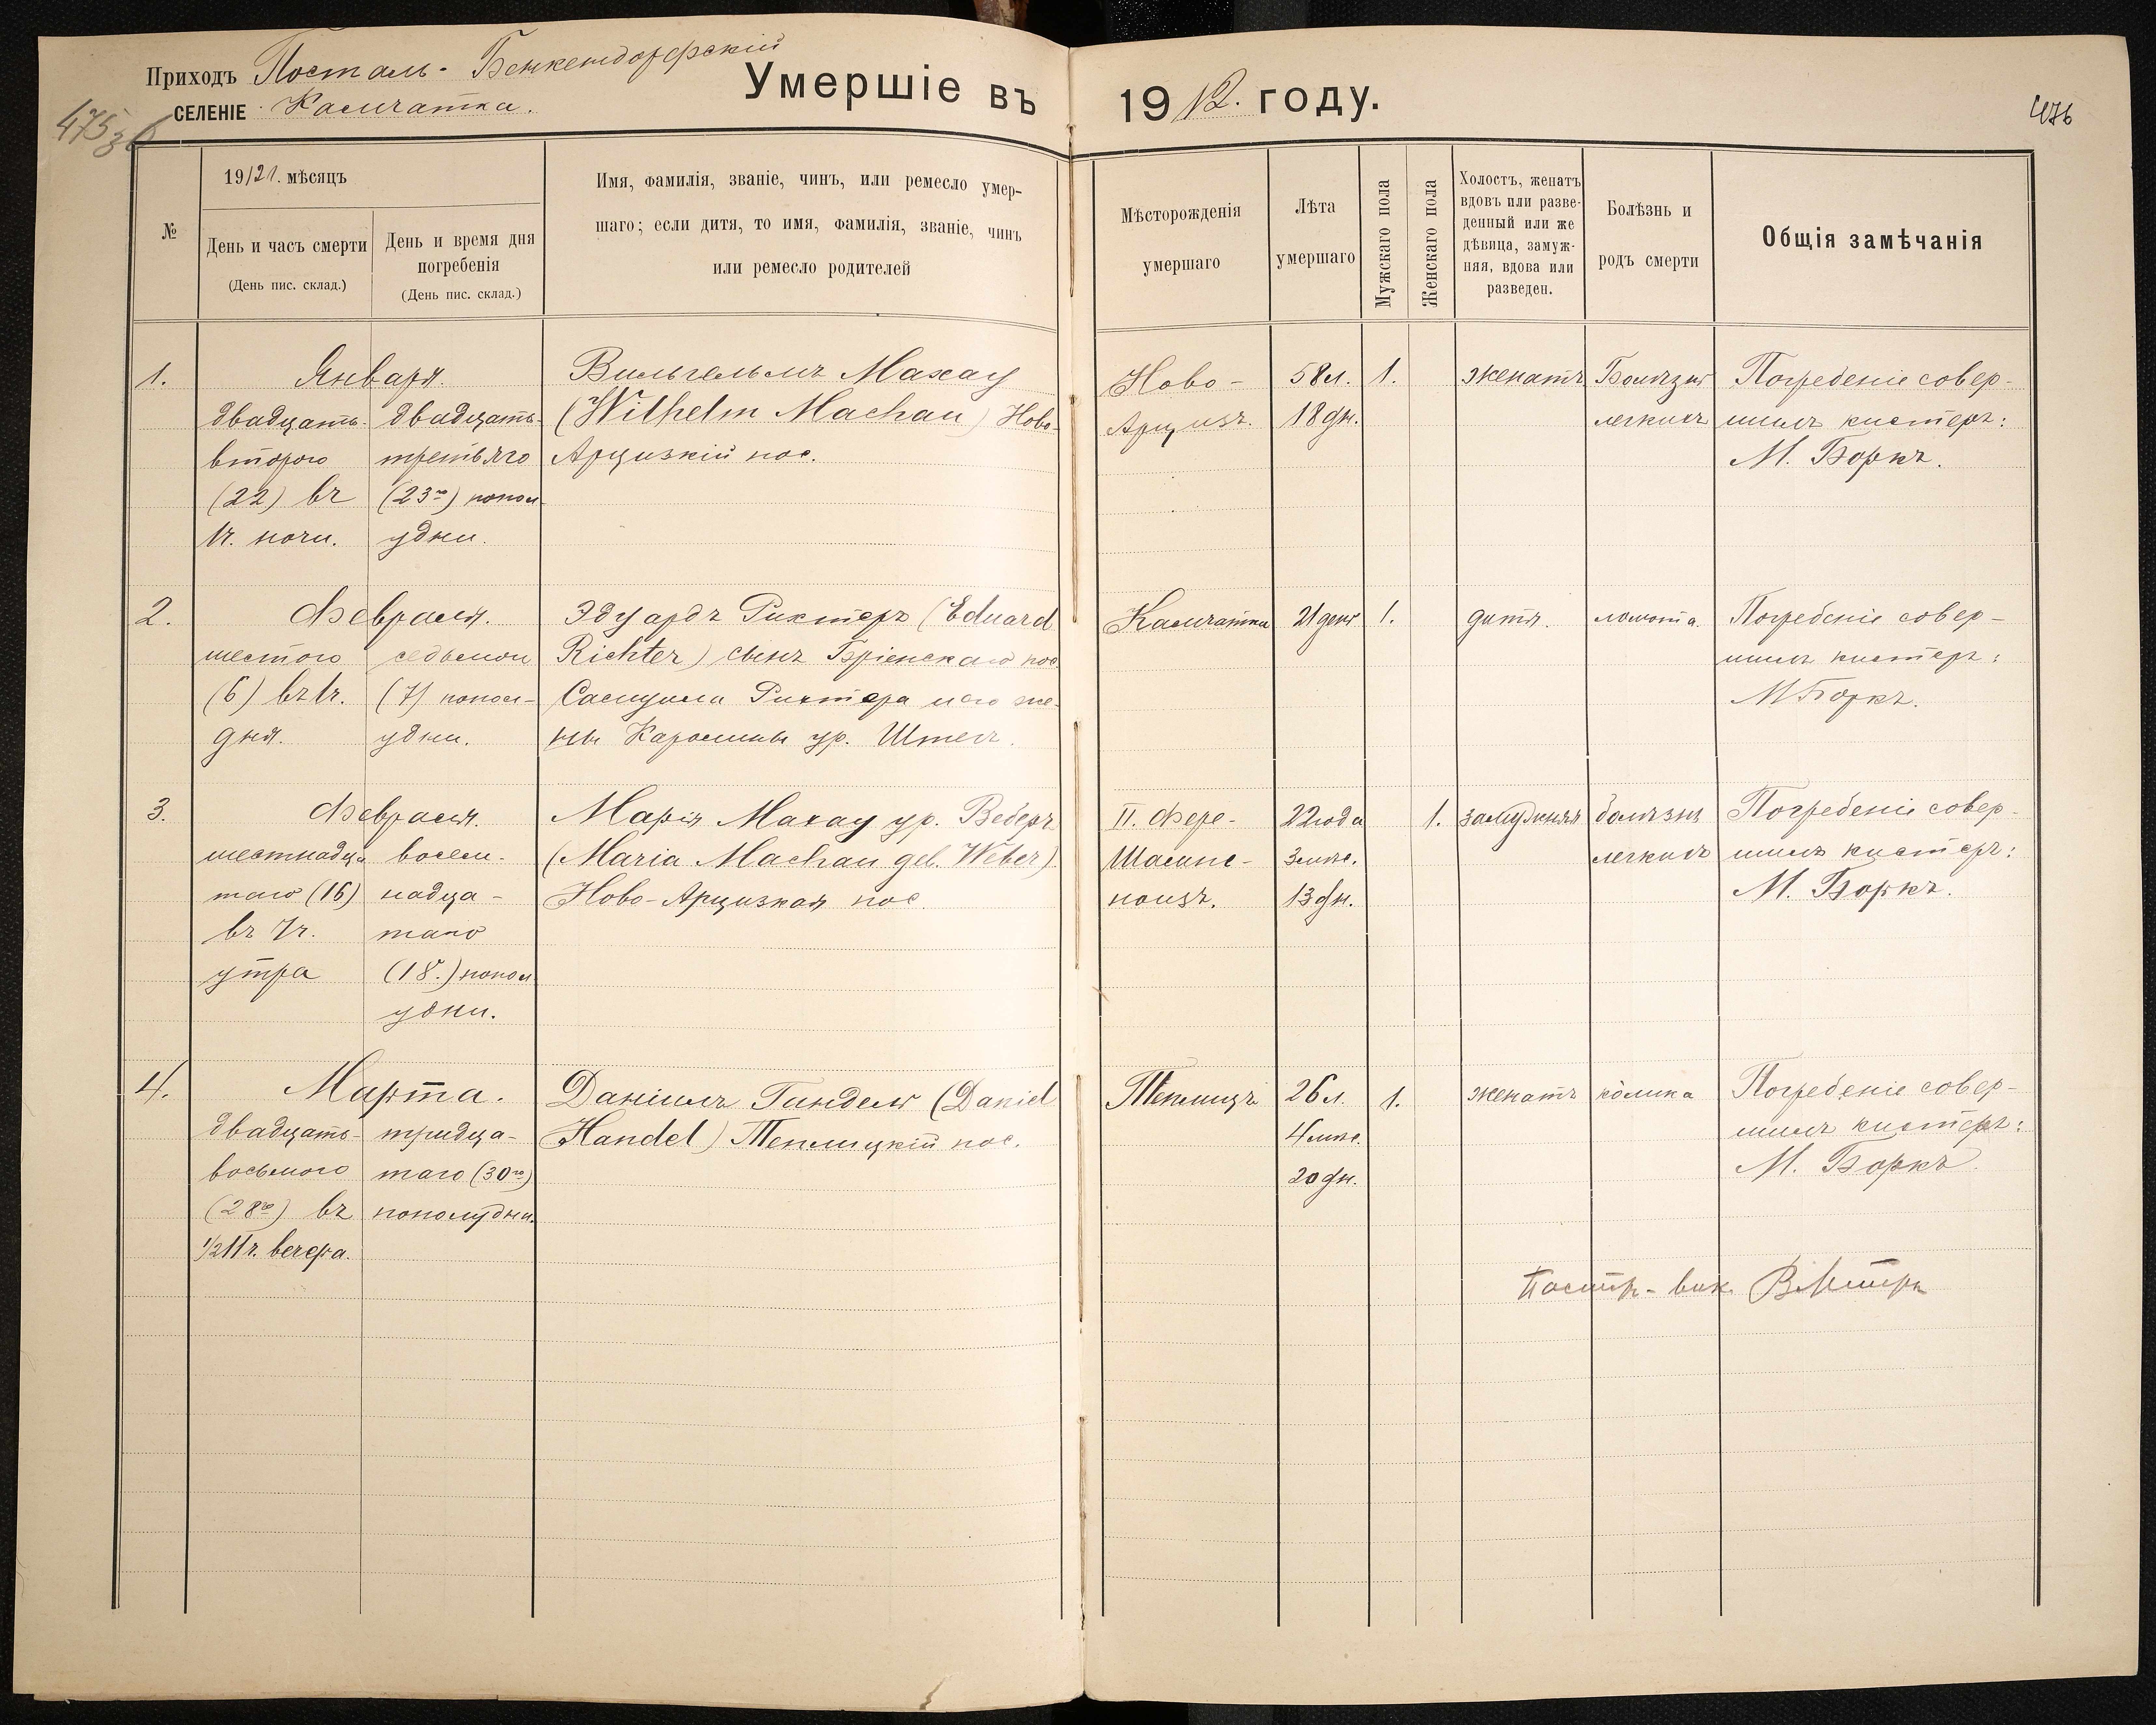 Приходъ Посталь-Бенкендорфскій
СЕЛЕНІЕ Камчатка.
Умершіе въ 1912. году.
475
476
№
1912 г. мѣсяцъ
День и часъ смерти
(День пис. склад.)
День и время дня
погребенія
(День пис. склад.)
Имя, фамилія, званіе, чинъ, или ремесло умер-
шаго; если дитя, то имя, фамилія, званіе, чинъ
или ремесло родителей
Мѣсторожденія
умершаго
Лѣта
умершаго
Мужскаго пола
Женскаго пола
Холостъ, женатъ
вдовъ или разве-
денный или же
дѣвица, замуж-
няя, вдова или
разведен.
Болѣзнь и
родъ смерти
Общія замѣчанія
1.
Января.
двадцать-
второго
(22) въ
1ч. ночи.
двадцать-
третьяго
(23го) попол-
удни.
Вильгельмъ Махау
(Wilhelm Machau) Ново-
Арцизкій пос.
Ново-
Арцизъ.
58л.
18дн.
1.
женатъ
Болѣзнь
легкихъ
Погребеніе совер-
шилъ кистеръ:
М. Боркъ.
2.
Февраля.
шестого
(6) въ 1ч.
дня.
седьмои
(7) попол-
удни.
Эдуардъ Рихтеръ (Eduard
Richter) сынъ Бріенскаго пос
Самуила Рихтера и его же-
ны Каролины ур. Штел
Камчатка
21 день
1.
дитя.
ломота.
Погребеніе совер-
шилъ кистеръ:
М Боркъ.
3.
Февраля.
шестнадца
таго (16)
въ 7ч.
утра
восем-
надца-
таго
(18.) попол
удни.
Марія Махау ур. Веберъ
(Maria Machau geb. Weber)
Ново-Арцизкая пос.
II. Фере-
Шампе-
ноизъ.
22года
3мѣс.
13дн.
1.
замужняя
болѣзнь
легкихъ
Погребеніе совер-
шилъ кистеръ:
М. Боркъ.
4.
Марта.
двадцать-
восьмого
(28го) въ
1/2 11ч. вечера.
тридца-
таго (30го)
пополудни.
Даніилъ Гиндель (Daniel
Handel) Теплицкій пос.
Теплицъ
26л.
4мѣс.
20дн.
1.
женатъ
колика
Погребеніе совер-
шилъ кистеръ:
М. Боркъ.
Пасторъ-вик.